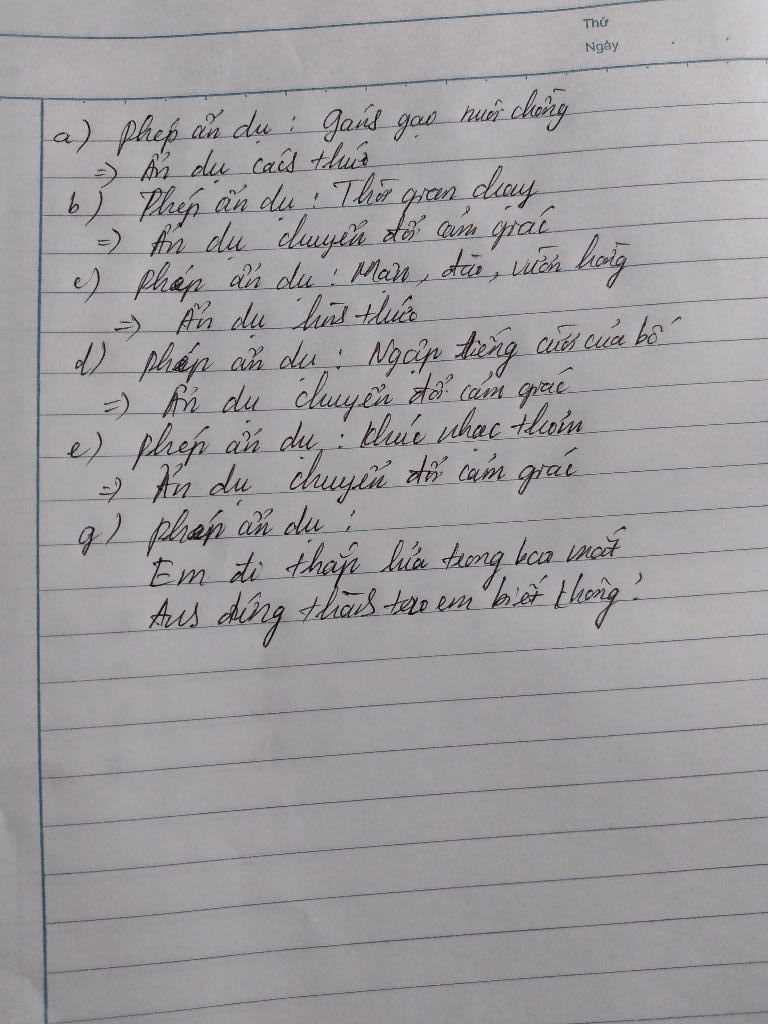 Thứ
Ngày
a) Phép ẩn dụ : Gánh gạo nuôi chồng
=> Ẩn dụ cách thức
b) Phép ẩn dụ : Thời gian chạy
=> Ẩn dụ chuyển đổi cảm giác
c) Phép ẩn dụ : Mận, đào, vườn hồng
=> Ẩn dụ hình thức
d) Phép ẩn dụ : Ngập tiếng cười của bố
=> Ẩn dụ chuyển đổi cảm giác
e) Phép ẩn dụ : khúc nhạc thơm
=> Ẩn dụ chuyển đổi cảm giác
g) Phép ẩn dụ :
Em đi thắp lửa trong bao mắt
Anh đứng thành tro em biết không?